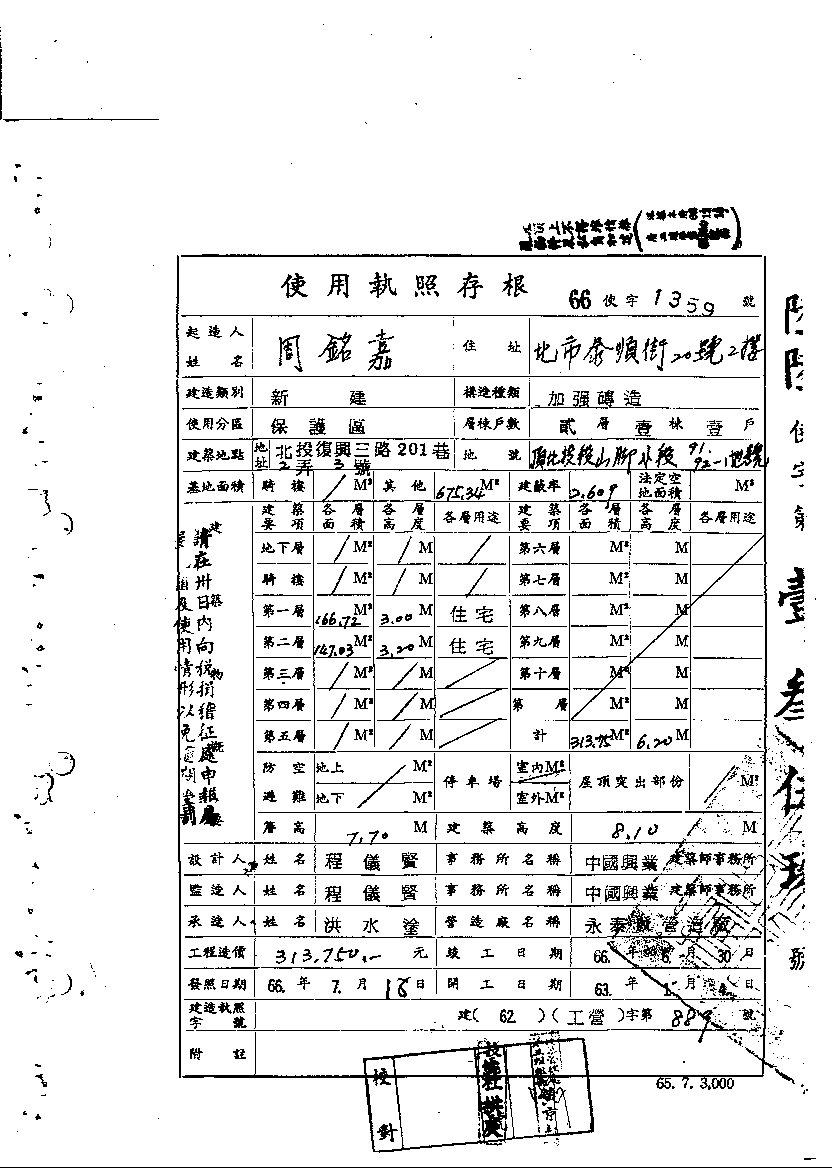 使用執照存根
66 使字 1359 號
起造人姓名 周銘嘉 住址 北市泰順街20號2樓
建造類別 新建 構造種類 加强磚造
使用分區 保護區 層棟戶數 貳層壹棟壹戶
建築地點 地址 北投復興三路201巷2弄3號 地號 頂北投段山腳小段91. 92-1地號
基地面積 騎樓 / M² 其他 675.34 M² 建蔽率 2.609 法定空地面積 M²
建築要項 各層面積 各層高度 各層用途 建築要項 各層面積 各層高度 各層用途
地下層 / M² / M / 第六層 M² M
騎樓 / M² / M / 第七層 M² M
第一層 166.72 M² 3.00 M 住宅 第八層 M² M
第二層 147.03 M² 3.20 M 住宅 第九層 M² M
第三層 / M² / M / 第十層 M² M
第四層 / M² / M / 第 層 M² M
第五層 / M² / M / 計 313.75 M² 6.20 M
防空避難 地上 / M² 停車場 室內M² 屋頂突出部份 / M²
地下 室外M²
簷高 7.70 M 建築高度 8.10 M
設計人 姓名 程儀賢 事務所名稱 中國興業 建築師事務所
監造人 姓名 程儀賢 事務所名稱 中國興業 建築師事務所
承造人 姓名 洪水塗 營造廠名稱 永泰 營造廠
工程造價 313,750.- 元 竣工日期 66.年 6.月 30日
發照日期 66.年 7.月 18日 開工日期 63.年 1.月 4.日
建造執照字號 建( 62 )( 工營 )字第 889 號
附註
65. 7. 3,000
校對
使字第
壹
叁
伍
玖
號